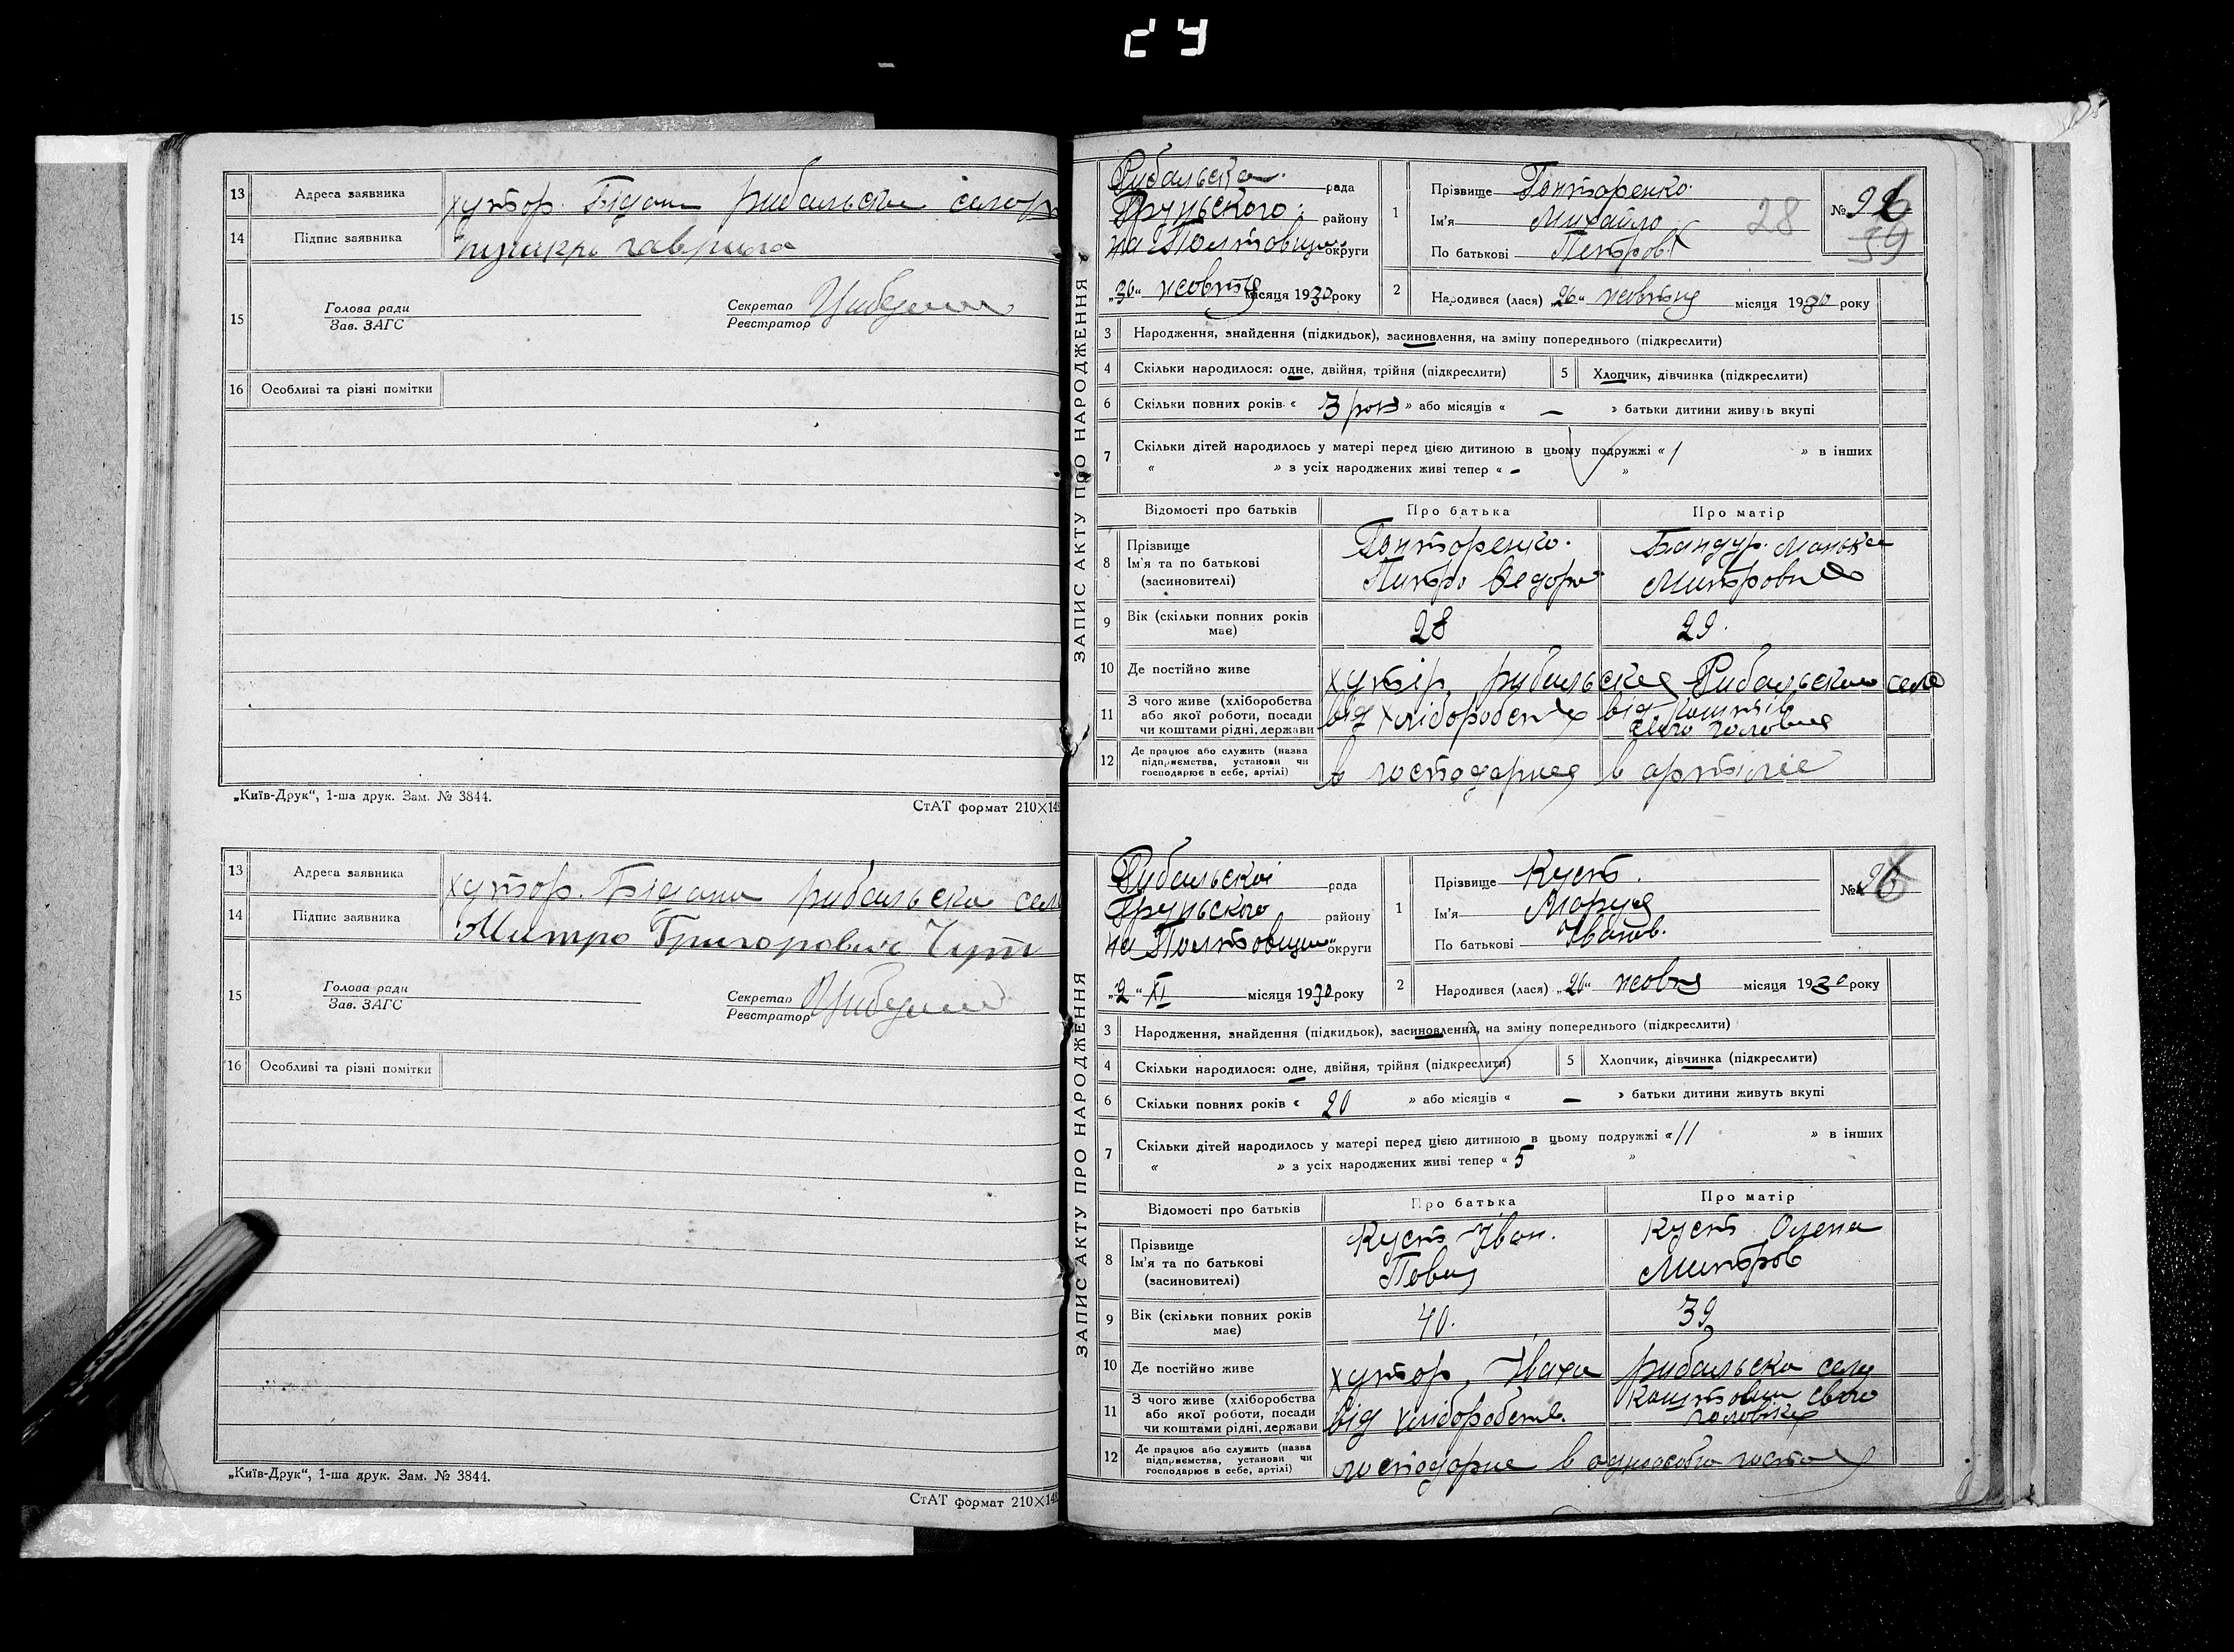 24
13 Адреса заявника хутор. Бідани рибальска
14 Підпис заявника гаврило
15 Голова ради
Зав. ЗАГС
Секретар
Реєстратор
16 Особливі та різні помітки
„Київ-Друк“, 1-ша друк. Зам. № 3844.
СтАТ формат 210×148
13 Адреса заявника хутор. Бідани рибальска
14 Підпис заявника Митро Григорович
15 Голова ради
Зав. ЗАГС
Секретар
Реєстратор
16 Особливі та різні помітки
„Київ-Друк“, 1-ша друк. Зам. № 3844.
СтАТ формат 210×148
ЗАПИС АКТУ ПРО НАРОДЖЕННЯ
Рибальска рада
Грунського району
на округи
„30“ жовтня місяця 1930 року
1 Прізвище Гонторенко.
Ім'я Михайло
По батькові Петров
28
№
39
2 Народився (лася) „26“ жовтня місяця 1930 року
3 Народження, знайдення (підкидьок), засиновлення, на зміну попереднього (підкреслити)
4 Скільки народилося: одне, двійня, трійня (підкреслити)
5 Хлопчик, дівчинка (підкреслити)
6 Скільки повних років « 3 рок » або місяців « – » батьки дитини живуть вкупі
7 Скільки дітей народилось у матері перед цією дитиною в цьому подружжі « 1 » в інших
« » з усіх народжених живі тепер « - »
Відомості про батьків
Про батька
Про матір
8 Прізвище
Ім'я та по батькові
(засиновителі)
Гонторенко.
Петро Федоро
Бандур.
9 Вік (скільки повних років має)
28
29.
10 Де постійно живе хутір. Рибальского села
11 З чого живе (хліборобства
або якої роботи, посади
чи коштами рідні, держави
від
від коштів
свого
12 Де працює або служить (назва
підприємства, установи чи
господарює в себе, артілі)
в
в
ЗАПИС АКТУ ПРО НАРОДЖЕННЯ
Рибальскої рада
Грунського району
на округи
„2“ XI місяця 1930 року
1 Прізвище Куст.
Ім'я Маруся
По батькові Іванов.
№
2 Народився (лася) „26“ місяця 1930 року
3 Народження, знайдення (підкидьок), засиновлення, на зміну попереднього (підкреслити)
4 Скільки народилося: одне, двійня, трійня (підкреслити)
5 Хлопчик, дівчинка (підкреслити)
6 Скільки повних років « 20 » або місяців « – » батьки дитини живуть вкупі
7 Скільки дітей народилось у матері перед цією дитиною в цьому подружжі « 11 » в інших
« » з усіх народжених живі тепер « 5 »
Відомості про батьків
Про батька
Про матір
8 Прізвище
Ім'я та по батькові
(засиновителі)
Куст Іван.
Куст Олена
Митров
9 Вік (скільки повних років має)
40.
39
10 Де постійно живе хутор. Іваха рибальска
11 З чого живе (хліборобства
або якої роботи, посади
чи коштами рідні, держави
від хліборобств.
свого
12 Де працює або служить (назва
підприємства, установи чи
господарює в себе, артілі)
господарює в